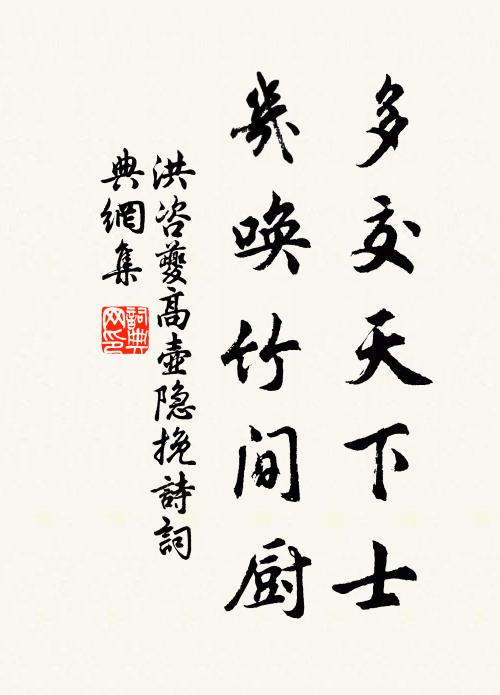 多交天下士
幾唤竹间厨
洪咨夔高壺隐挽詩詞
典網集
詞典网印